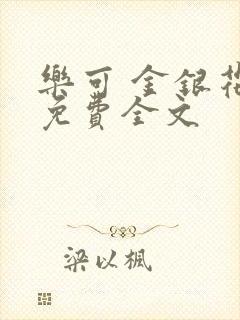 樂可 金銀花
免費全文
梁以楓